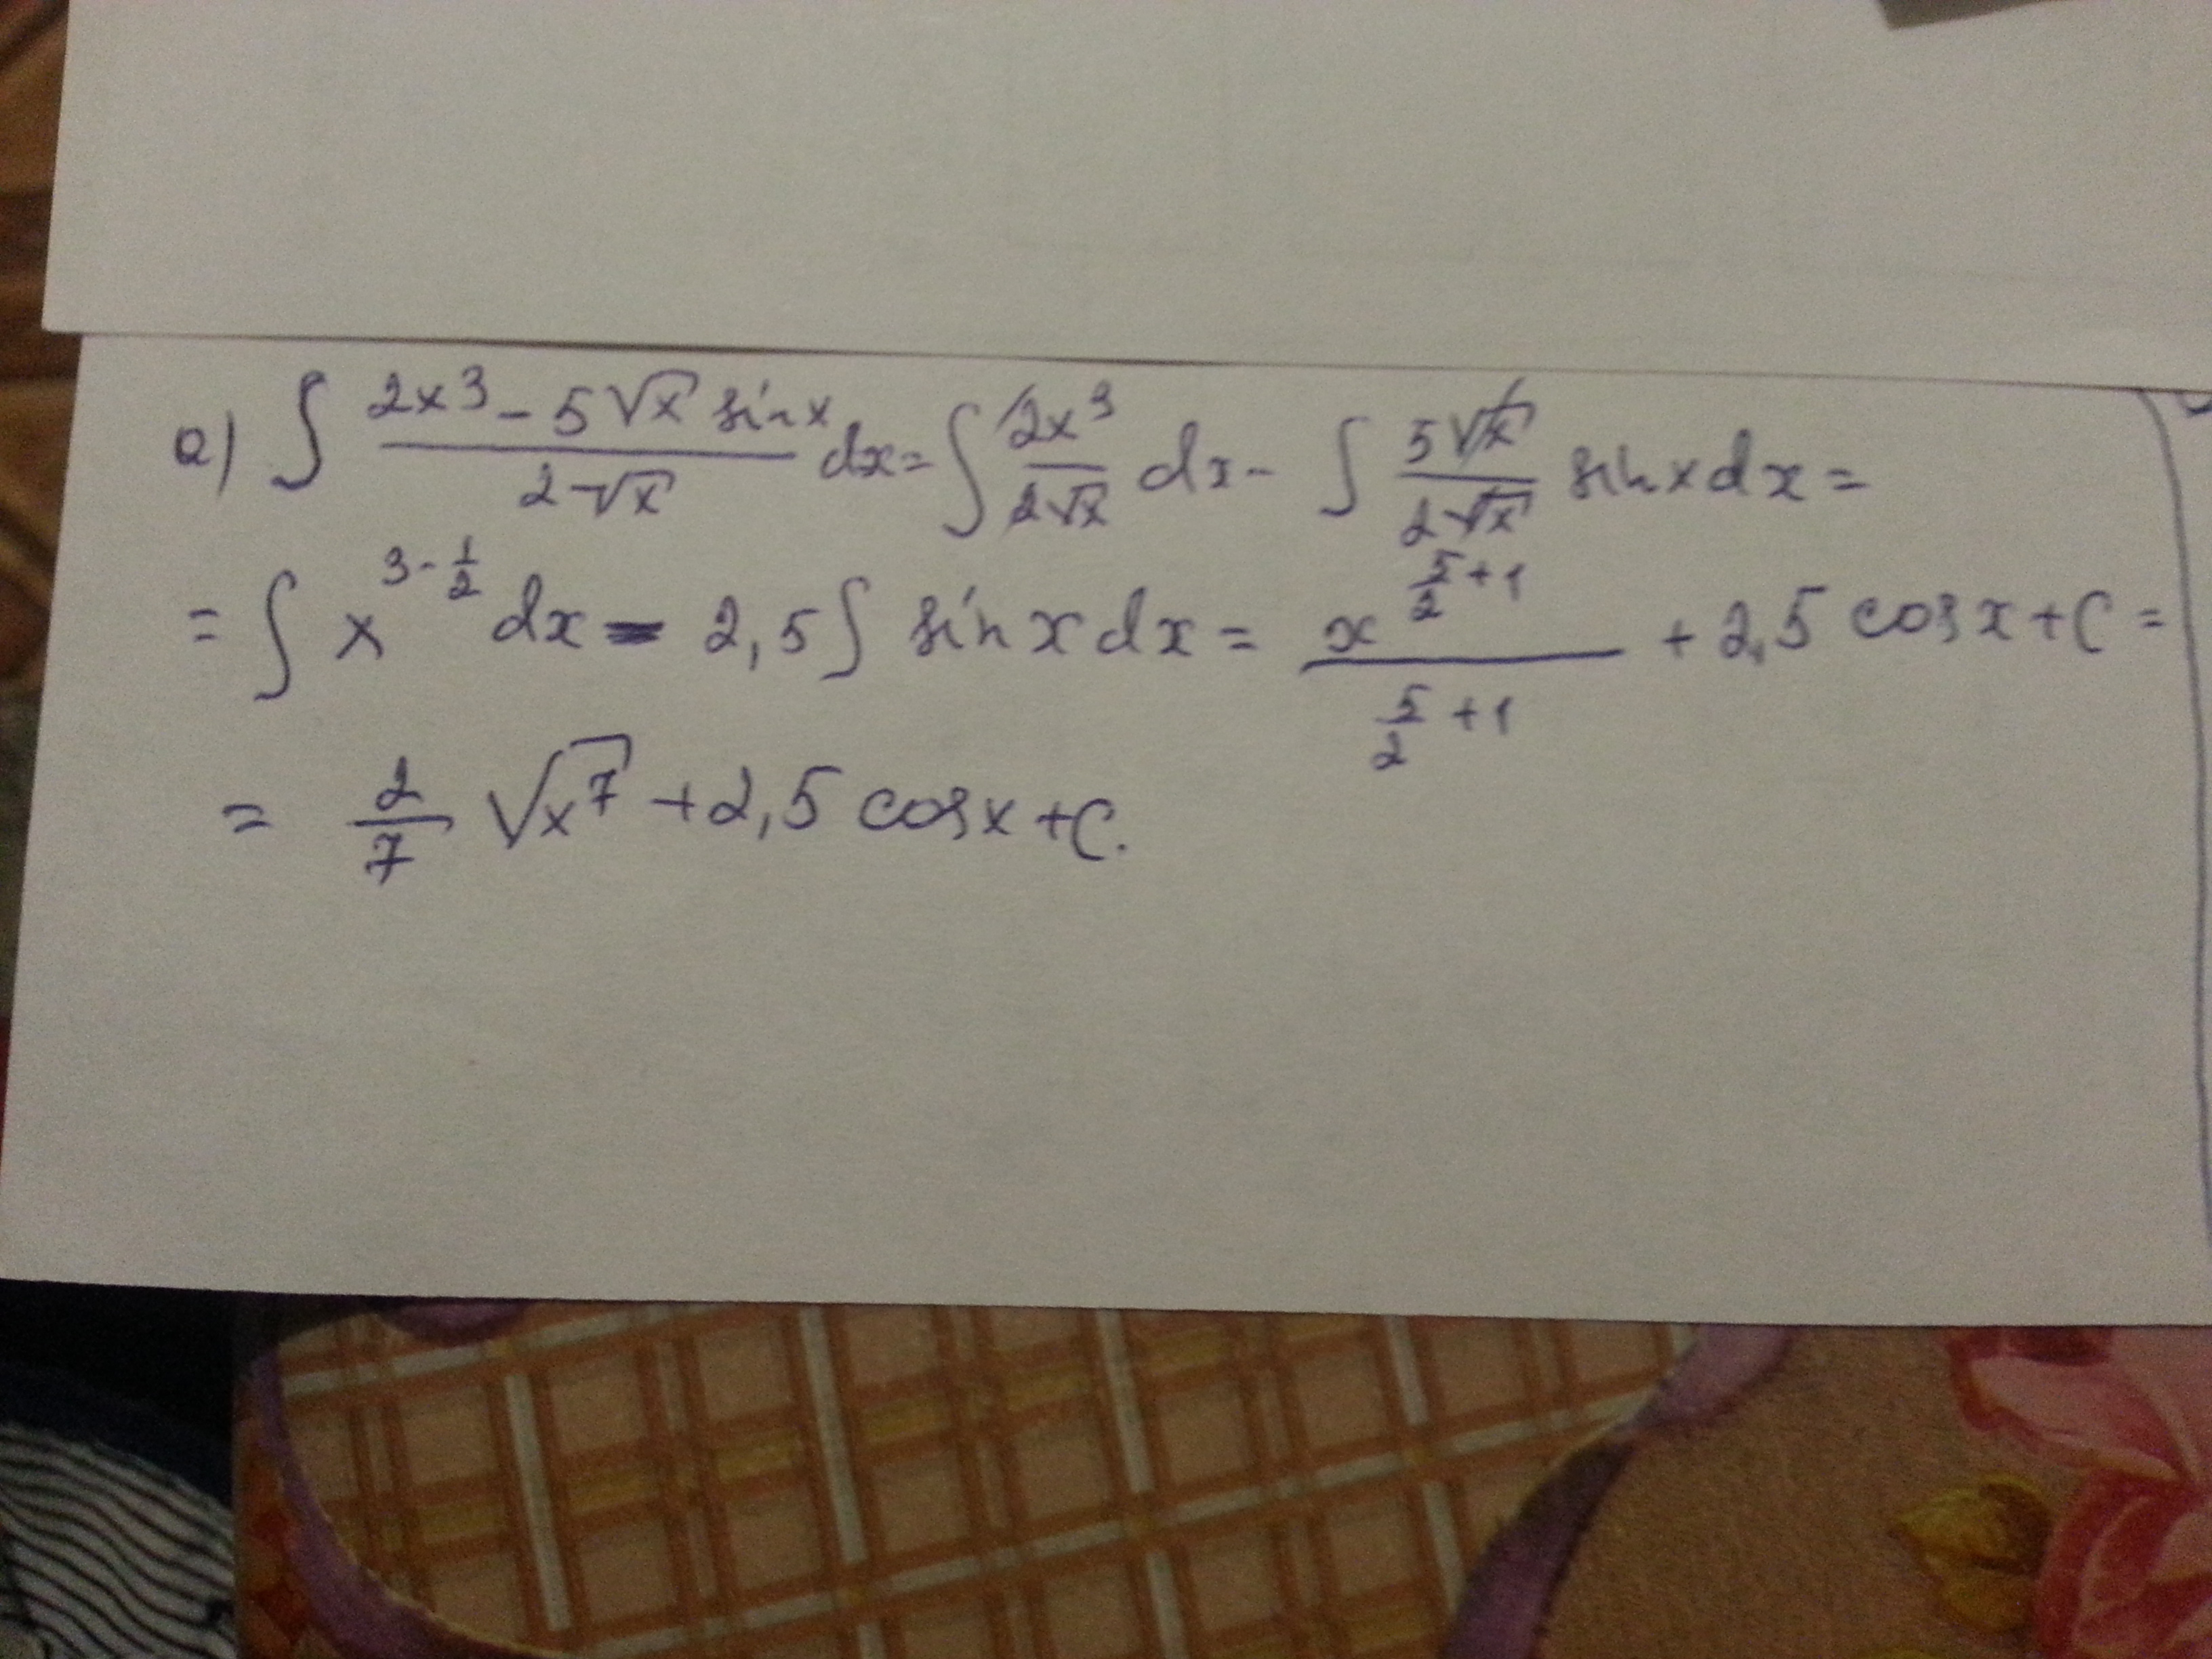 a) ∫ (2x³ - 5√x sin x)/(2√x) dx = ∫ 2x³/(2√x) dx - ∫ 5√x/(2√x) sin x dx =
= ∫ x^(3-1/2) dx - 2,5 ∫ sin x dx = x^(5/2+1)/(5/2+1) + 2,5 cos x + C =
= 2/7 √(x⁷) + 2,5 cos x + C.